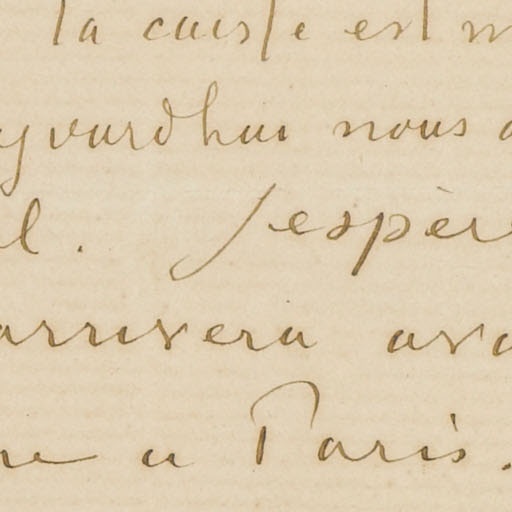 la caisse est
jourdhui nous
l. Jespère
arrivera ava
a Paris.